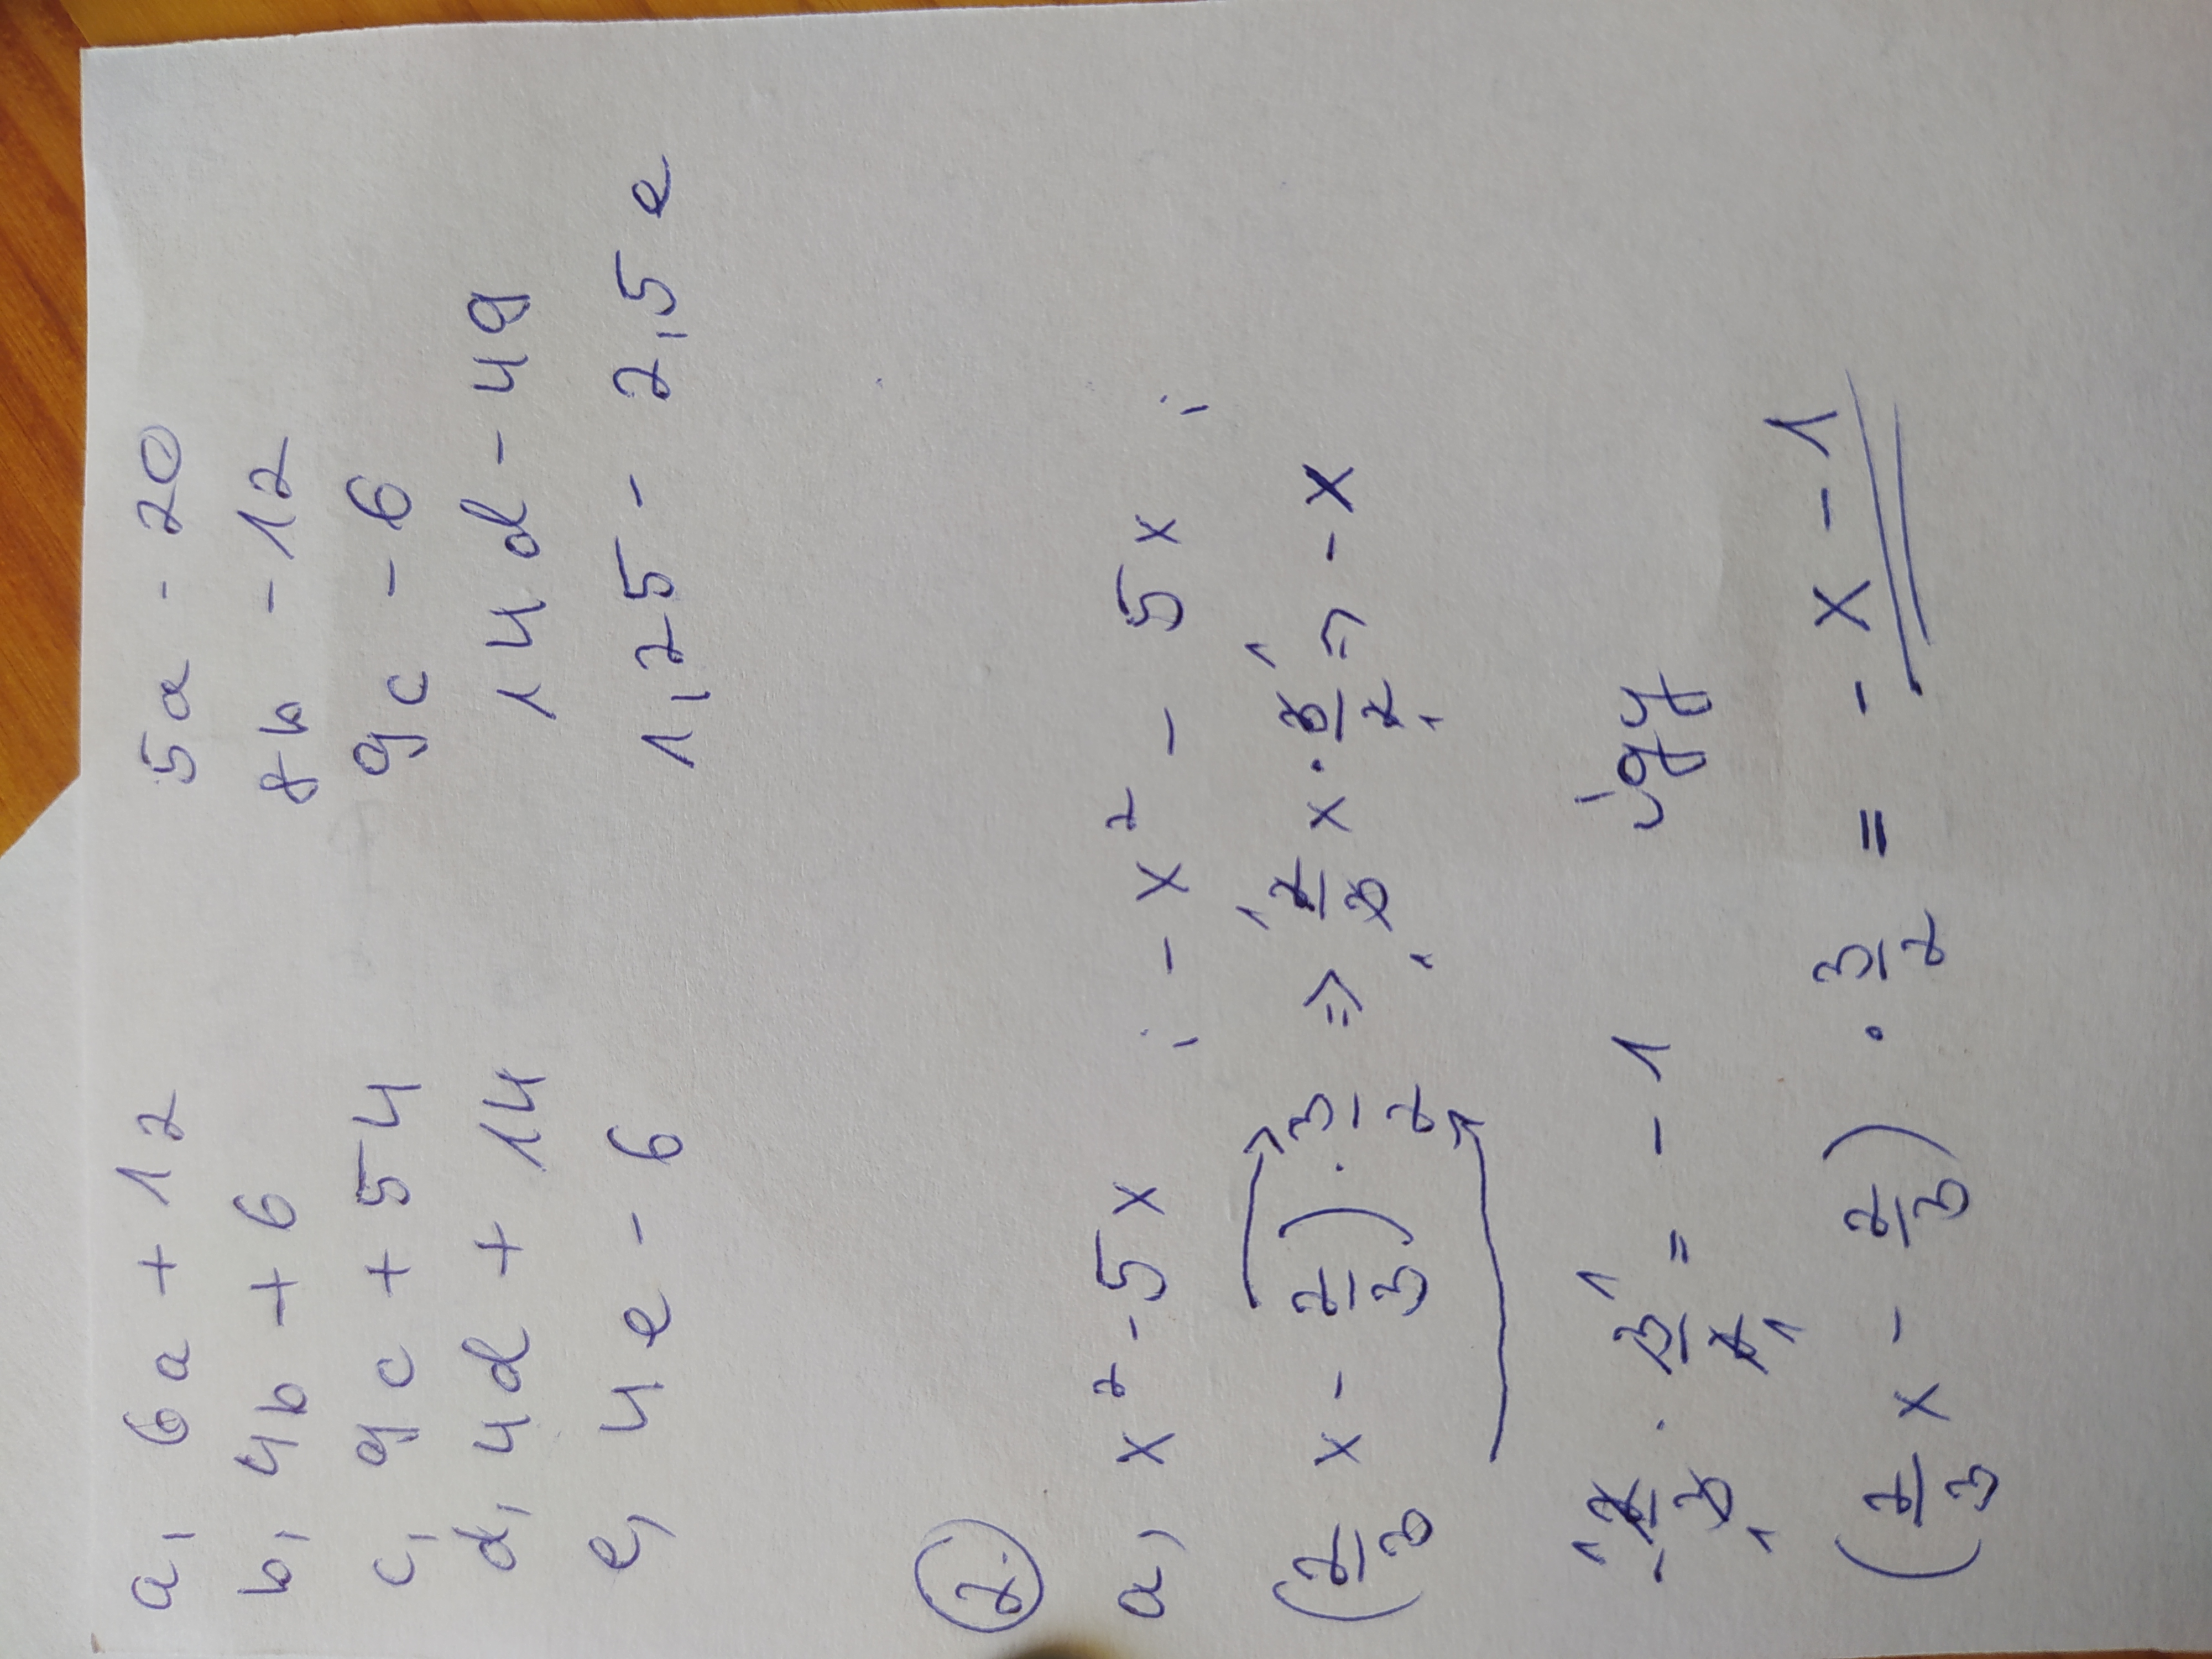 a, 6a + 12 5a - 20
b, 4b + 6 8b - 12
c, 9c + 54 9c - 6
d, 4d + 14 14d - 49
e, 4e - 6 1,25 - 2,5e
2.
a, x² - 5x ; - x² - 5x ;
(2/3 x - 2/3) · 3/2 => 2/3 x · 3/2 => - x
- 2/3 · 3/2 = - 1 így
(2/3 x - 2/3) · 3/2 = - x - 1